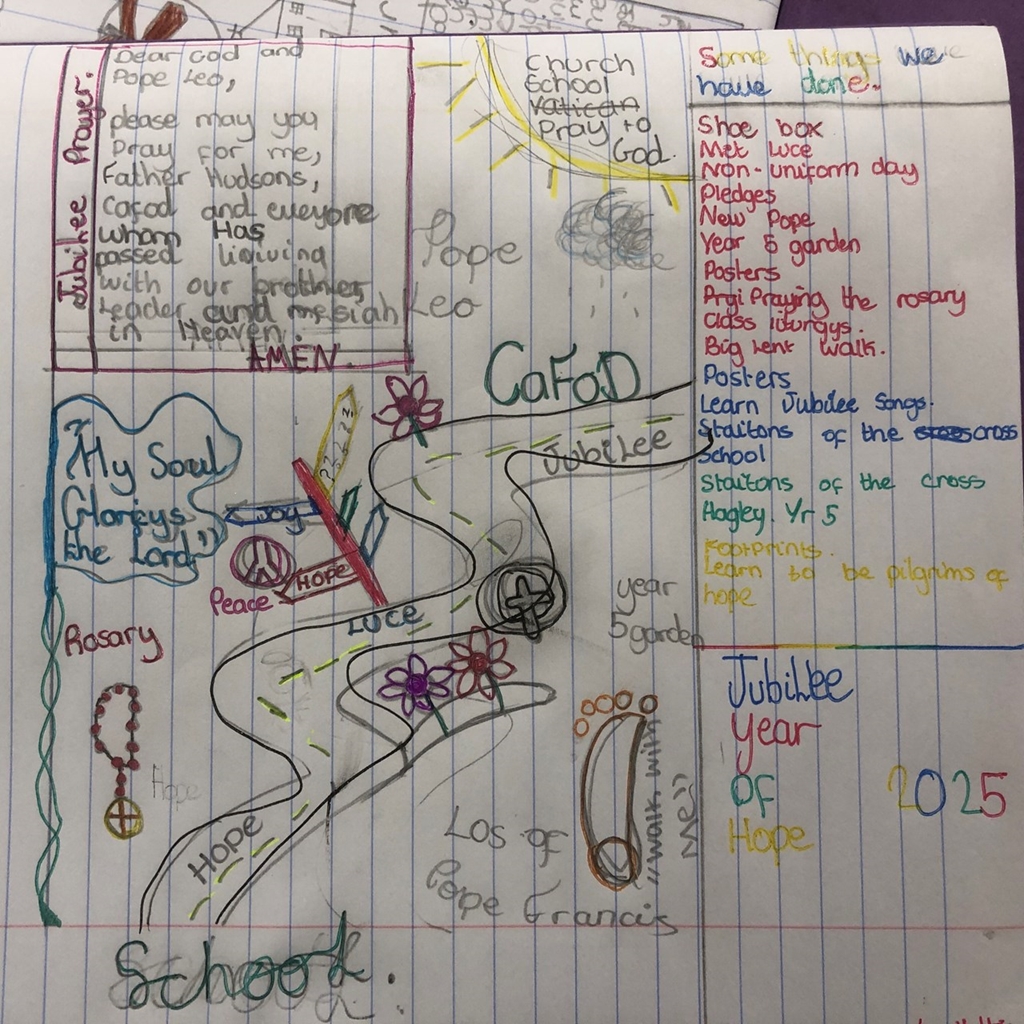 Jubilee Prayer.
Dear God and
Pope Leo,
please may you
Pray for me,
Father Hudsons,
Cafod and eveyone
whom Has
passed liviving
with our brother,
Leader and mesiah
in Heaven.
AMEN
Church
School
Vatican
Pray to
God.
Pope
Leo
Some things we
have done.
Shoe box
Met Luce
Non-uniform day
Pledges
New Pope
Year 5 garden
Posters
Praying the rosary
class liturgys.
Big lent walk.
Posters
Learn Jubilee Songs.
Staitons of the cross
School
Staitons of the cross
Hagley. Yr 5
Footprints.
Learn to be pilgrims of
hope
CaFoD
JubiLee
"My Soul
Glorifys
the Lord"
????
Joy
Hope
Peace
Luce
year
5 garden
Rosary
Hope
HOPE
Los of
Pope Francis
"walk with
Me"
School.
JubiLee
Year
Of 2025
Hope